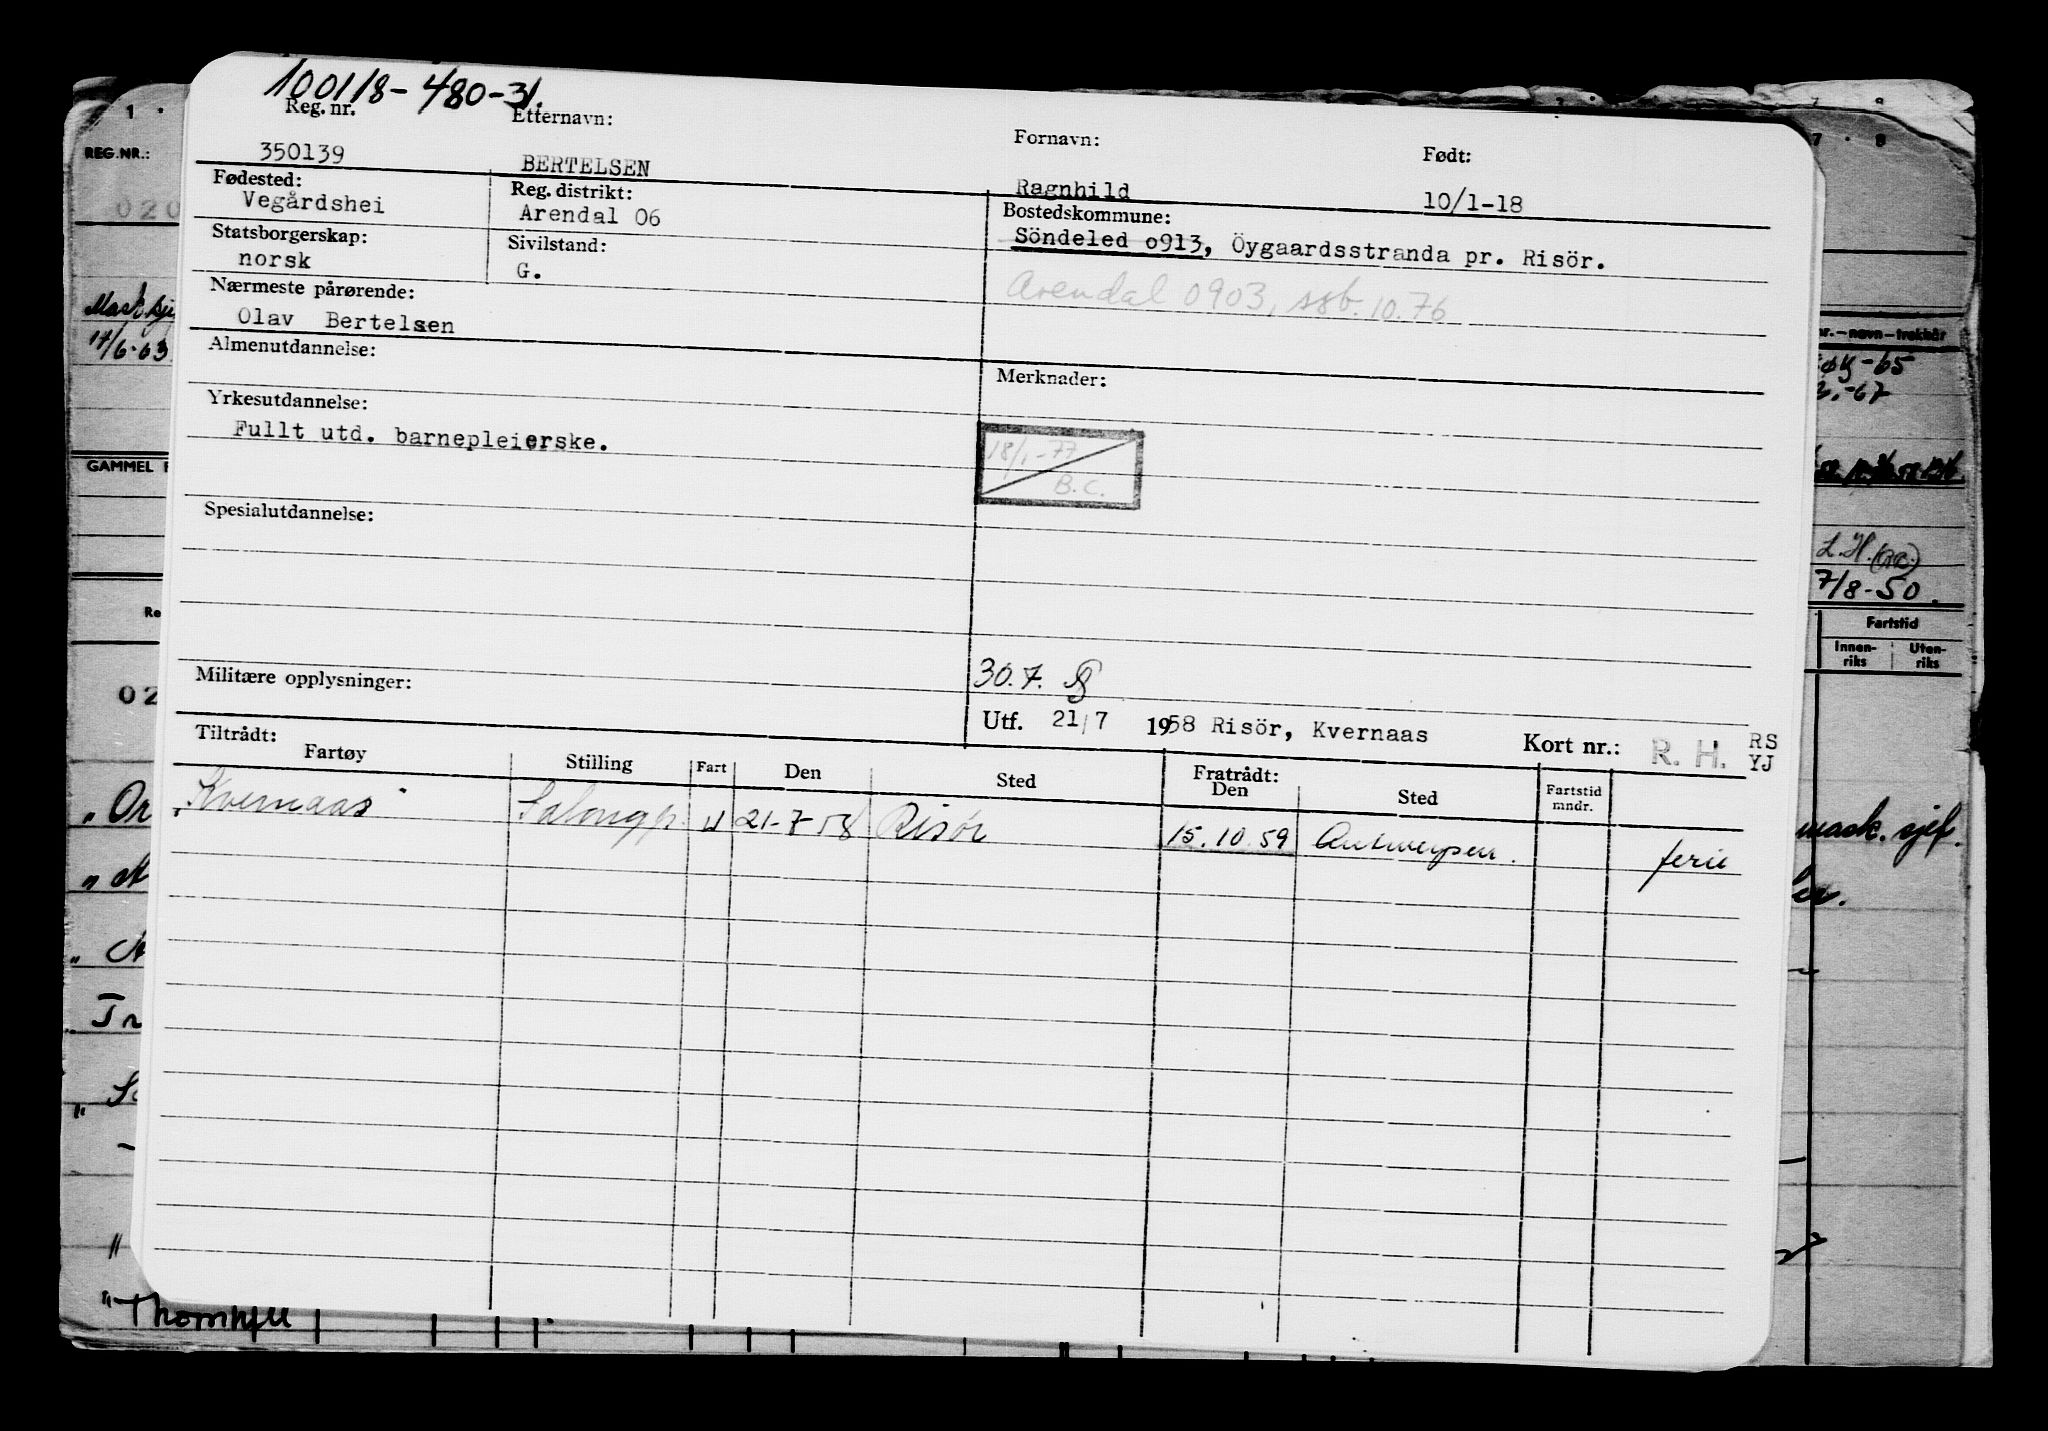 100118-480-31.
Reg. nr. Etternavn: Fornavn: Født:
350139 BERTELSEN Ragnhild 10/1-18
Fødested: Reg. distrikt: Bostedskommune:
Vegårdshei Arendal 06 Söndeled o913, Öygaardsstranda pr. Risör.
Statsborgerskap: Sivilstand:
norsk G.
Arendal 0903, 10.76
Nærmeste pårørende:
Olav Bertelsen
Almenutdannelse: Merknader:
Yrkesutdannelse:
Fullt utd. barnepleierske.
18/1-77
B.C.
Spesialutdannelse:
30.7.
Militære opplysninger:
Utf. 21/7 1958 Risör, Kvernaas Kort nr.: R. H. RS
YJ
Tiltrådt: Fratrådt:
Fartøy Stilling Fart Den Sted Den Sted Fartstid mndr.
"Kvernaas" Salongp. U 21-7 58 Risör 15.10.59 Antwerpen. ferie
REG.NR.:
020
Mask.sjef
17/6-63
GAMMEL
Re
02
"Thornhill
1
7 8
nr.—navn—trekkår
-65
-67
L.H.
7/8-50.
Fartstid
Innen-riks Uten-riks
mask. sjef.